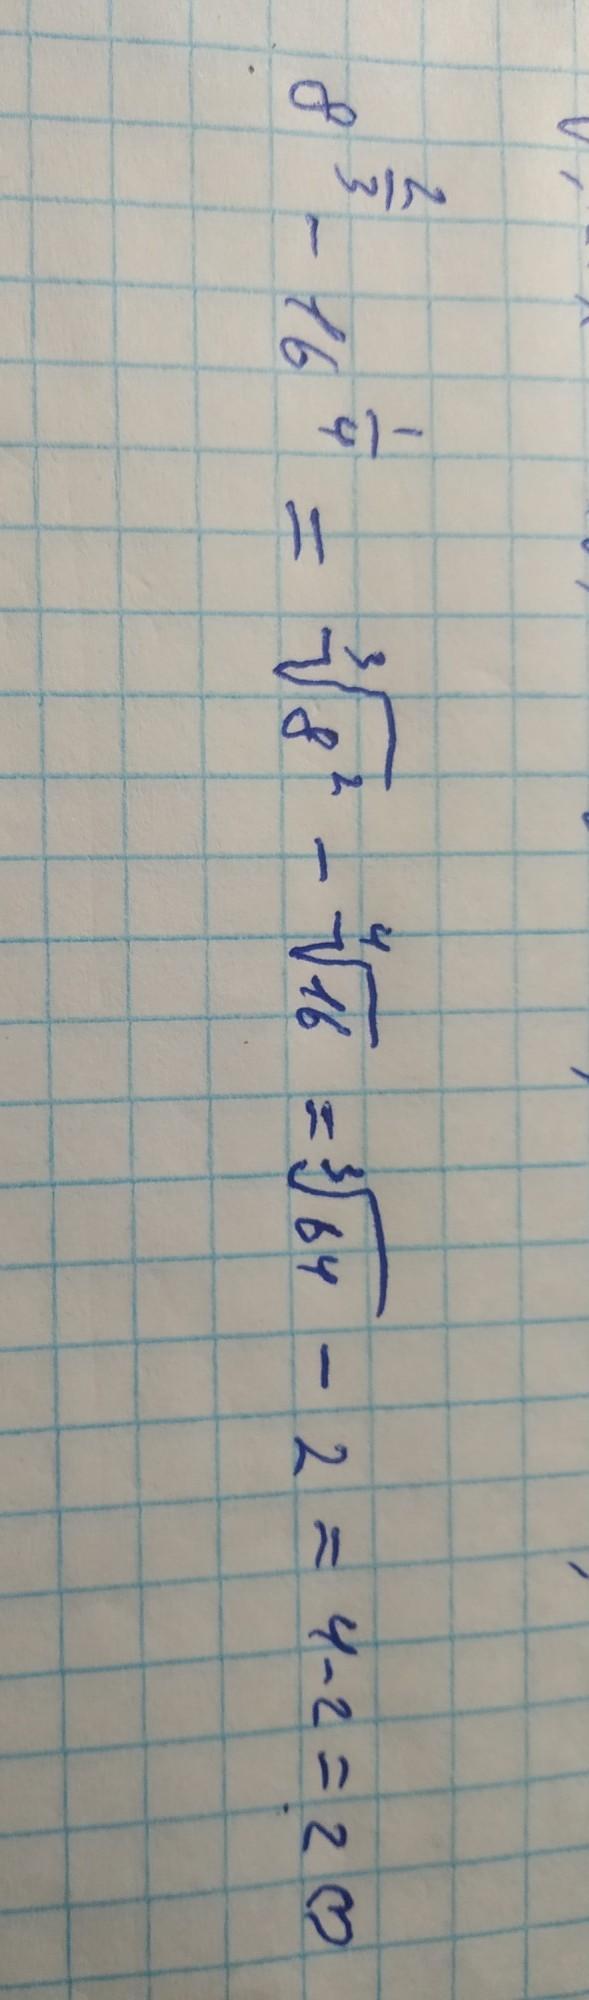 8^{\frac{2}{3}} - 16^{\frac{1}{4}} = \sqrt[3]{8^2} - \sqrt[4]{16} = \sqrt[3]{64} - 2 = 4 - 2 = 2 ♡